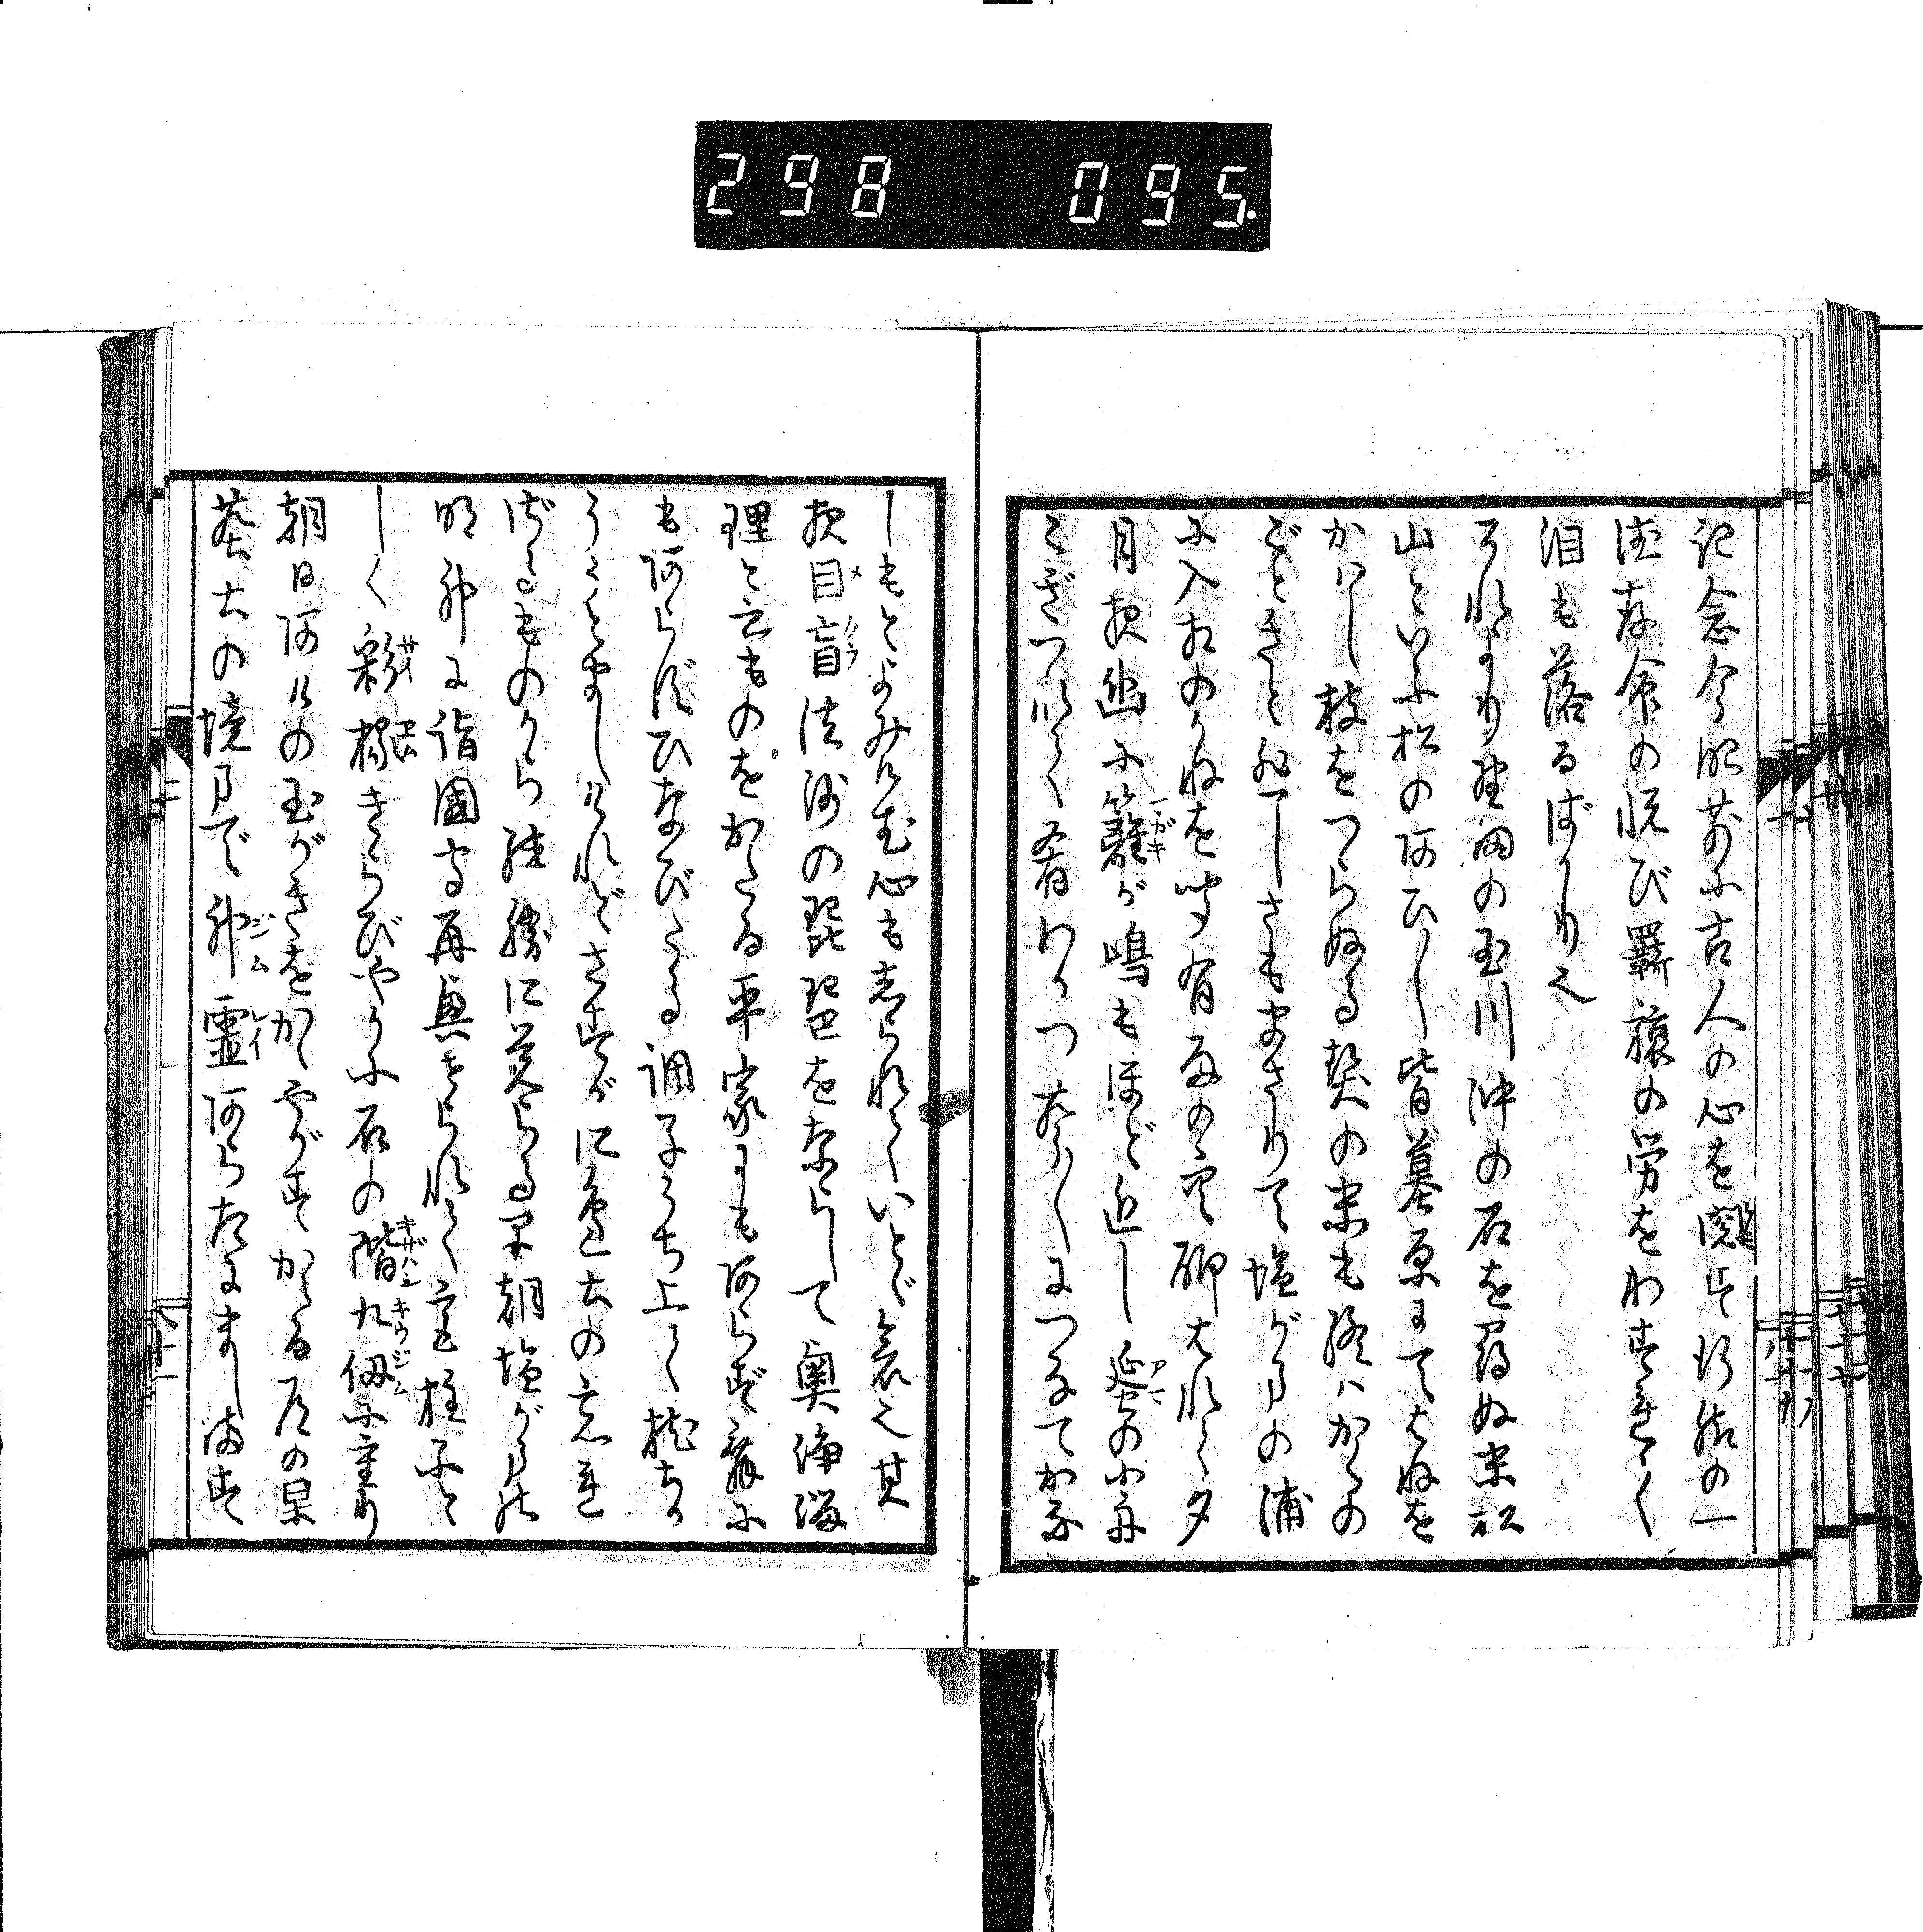 記念今眼前に古人の心を閲す行脚の一
徳存命の悦び羇旅の労をわすれて
泪も落るばかり也
それより野田の玉川沖の石を尋ぬ末松
山といふ松のあひ〱皆墓原にてはねを
かはし枝をつらぬる契の末も終ハかくの
ごときと悲しさもまさりて塩がまの浦
に入相のかねを聞五月雨の空聊はれて夕
月夜幽に籬が嶋もほど近し蜑の小舟
こぎつれて肴わかつ声〱につなてかな
しもとよみけむ心も志られていとゞ哀也其
夜目盲法師の琵琶をならして奥浄瑠
理と云ものをかたる平家にもあらず舞に
もあらずひなびたる調子うち上て枕ちか
うかしましけれどさすがに邊土の忘れ
ざるものから殊勝に覚らる早朝塩がまの
明神に詣國守再興せられて宮柱ふと
しく彩椽きらびやかに石の階九仭に重り
朝日あけの玉がきをかゝやかすかゝる道の果
塵土の境まで神靈あらたにまします
298 095